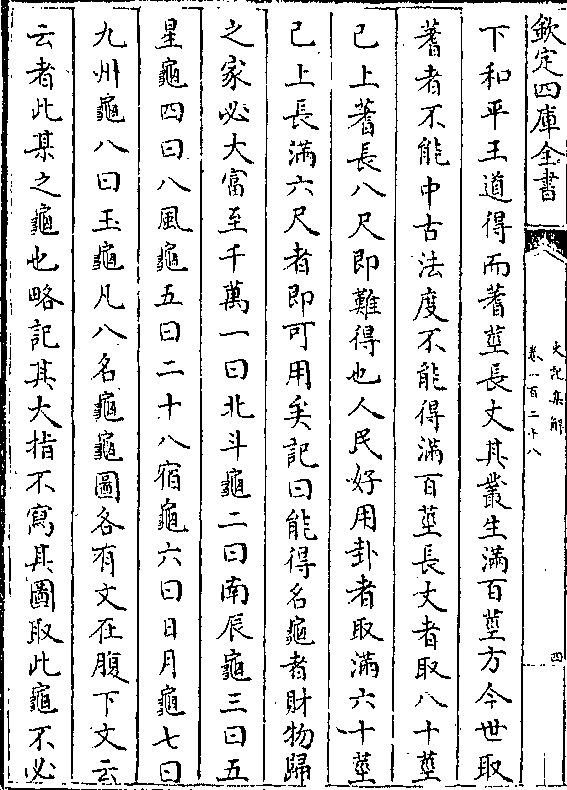 欽定四庫全書
史記集解
卷一百二十八
四
下和平王道得而蓍莖長丈其叢生滿百莖方今世取
蓍者不能中古法度不能得滿百莖長丈者取八十莖
已上蓍長八尺即難得也人民好用卦者取滿六十莖
已上長滿六尺者即可用矣記曰能得名龜者財物歸
之家必大富至千萬一曰北斗龜二曰南辰龜三曰五
星龜四曰八風龜五曰二十八宿龜六曰日月龜七曰
九州龜八曰玉龜凡八名龜龜圖各有文在腹下文云
云者此某之龜也略記其大指不寫其圖取此龜不必